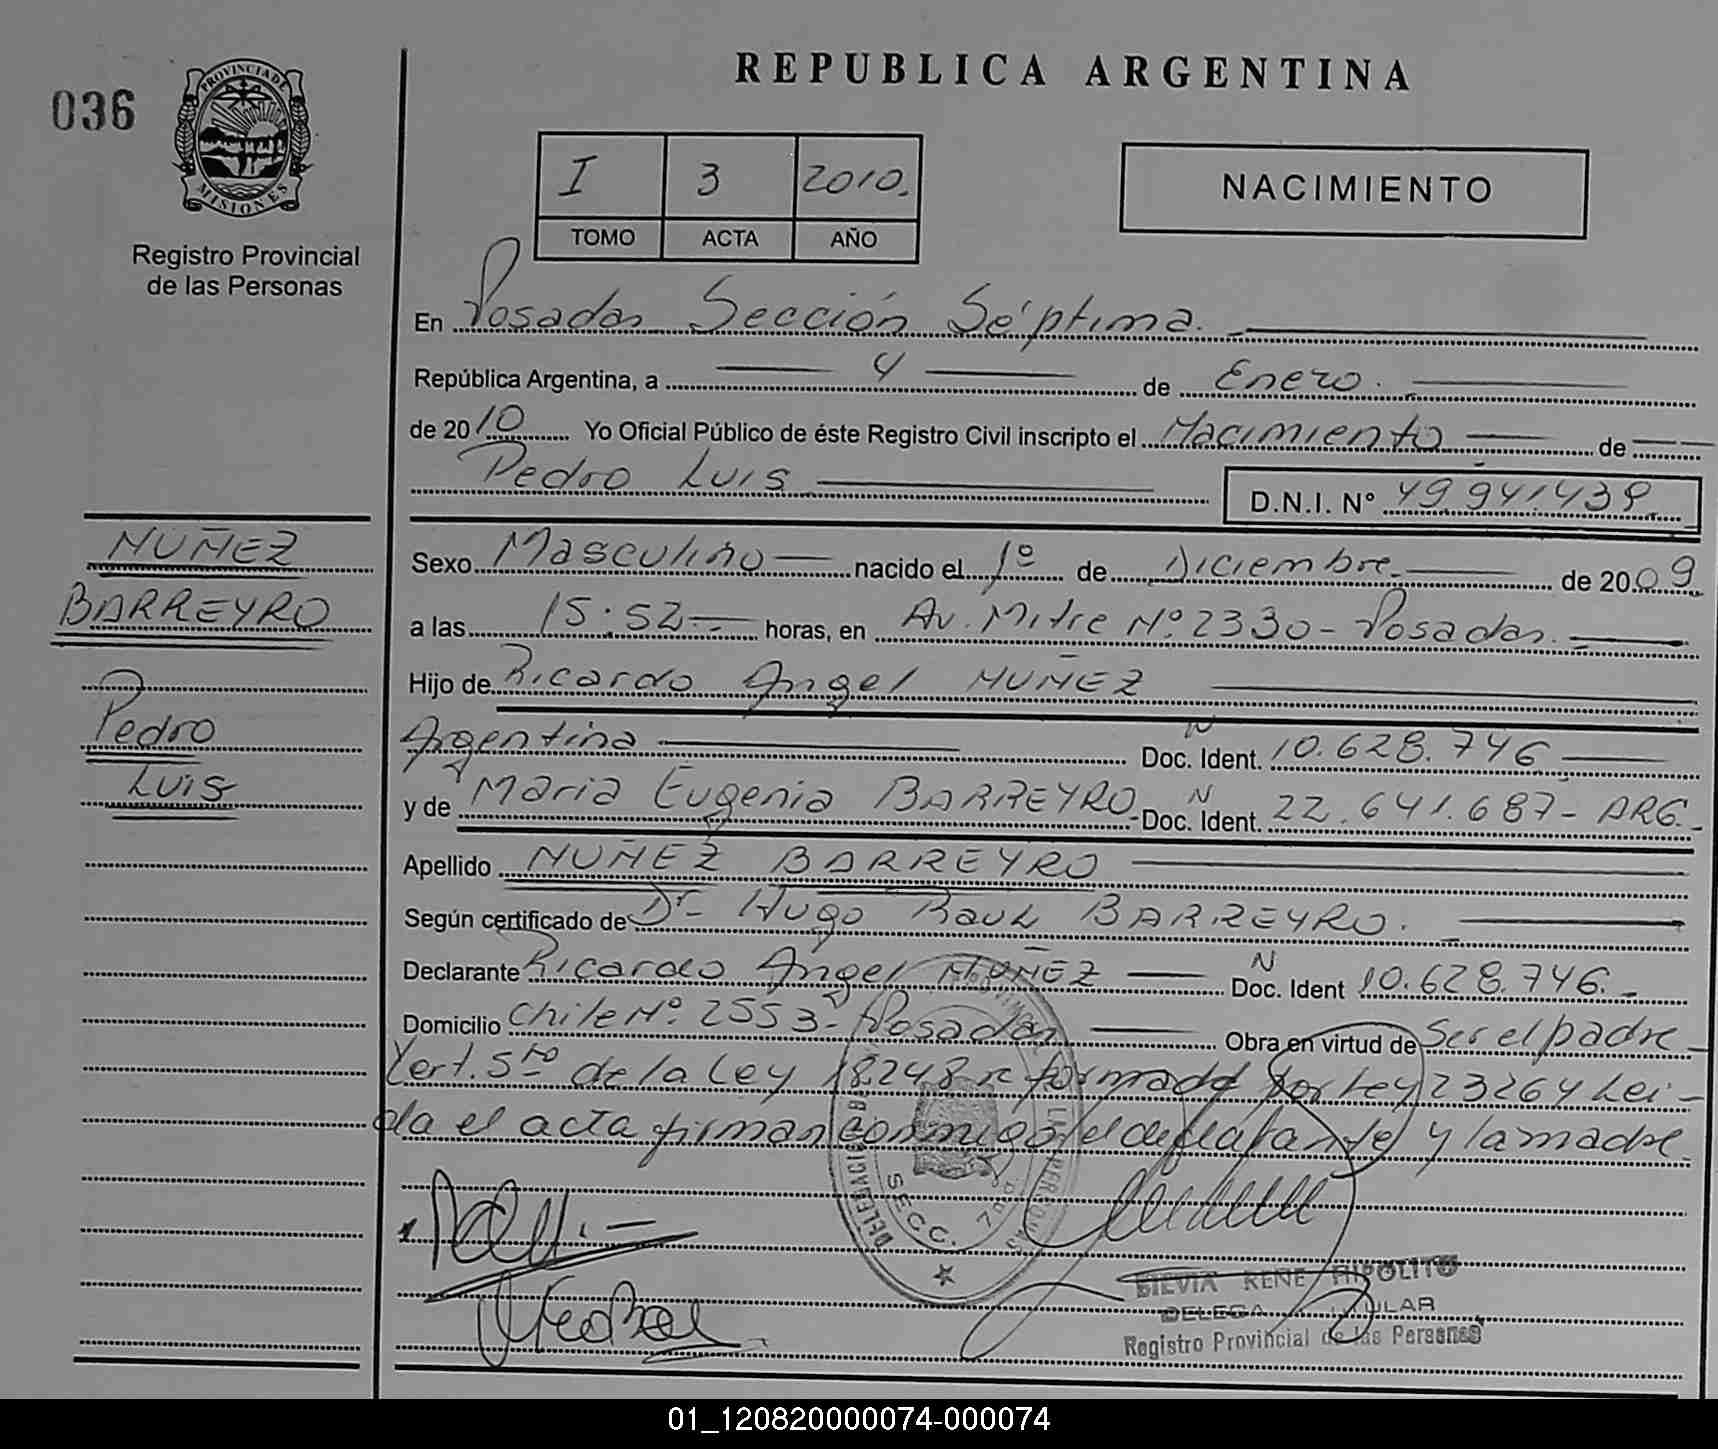 REPUBLICA ARGENTINA
036
PROVINCIA DE
MISIONES
Registro Provincial
de las Personas
I 3 2010.
TOMO ACTA AÑO
NACIMIENTO
En Posadas Sección Séptima.
República Argentina, a 4 de Enero.
de 2010 Yo Oficial Público de éste Registro Civil inscripto el Nacimiento de
Pedro Luis D.N.I. Nº 49.941.439.
NUÑEZ
BARREYRO
Pedro
Luis
Sexo Masculino nacido el 1º de Diciembre. de 2009
a las 15:52 horas, en Av. Mitre Nº 2330 - Posadas.
Hijo de Ricardo Angel NUÑEZ
Argentina Doc. Ident. N 10.628.746
y de Maria Eugenia BARREYRO - Doc. Ident. N 22.641.687 - ARG.-
Apellido NUÑEZ BARREYRO
Según certificado de Dr- Hugo Raul BARREYRO.
Declarante Ricardo Angel NUÑEZ Doc. Ident N 10.628.746.-
Domicilio Chile Nº. 2553- Posadas Obra en virtud de Ser el padre-
5to de la Ley 18248 formado por Ley 23264 Lei-
da el acta firman conmigo el declarante y la madre.
SECC. 7
SILVIA RENE HIPOLITO
Registro Provincial de las Personas
01_120820000074-000074